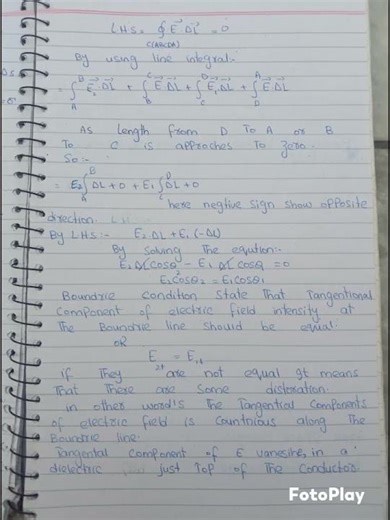 LHS = ∮ E⃗ . DL⃗ = 0
C(ABCDA)
By using line integral:-
= ∫_A^B E₂⃗ . DL⃗ + ∫_B^C E⃗ . DL⃗ + ∫_C^D E₁⃗ . DL⃗ + ∫_D^A E⃗ . DL⃗
As length from D To A or B
To C is approches To zoro.
So:-
= E₂ ∫_A^B DL + 0 + E₁ ∫_C^D DL + 0
here negtive sign show opposite
direction.
By LHS:- E₂ DL + E₁ (-DL)
By Solving The eqution:-
E₂ DL cosθ² - E₁ DL cosθ₁ = 0
E₂ cosθ₂ = E₁ cosθ₁
Boundrie condition state That Tangentional
component of electric field intensity at
The Boundrie line should be equal.
OR
E₂t = E₁t
if They are not equal It means
That There are some distoration.
in other word's The Tangential components
of electric field is countnious along The
Boundrie line.
Tangental component of E vanesines in a
dielectric just Top of The conductor.
FotoPlay